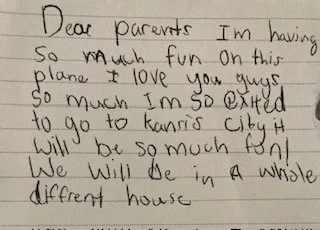 Dear parents Im having
so much fun on this
plane I love you guys
so much Im so exited
to go to kansis city it
will be so much fun!
We will be in a whole
diffrent house